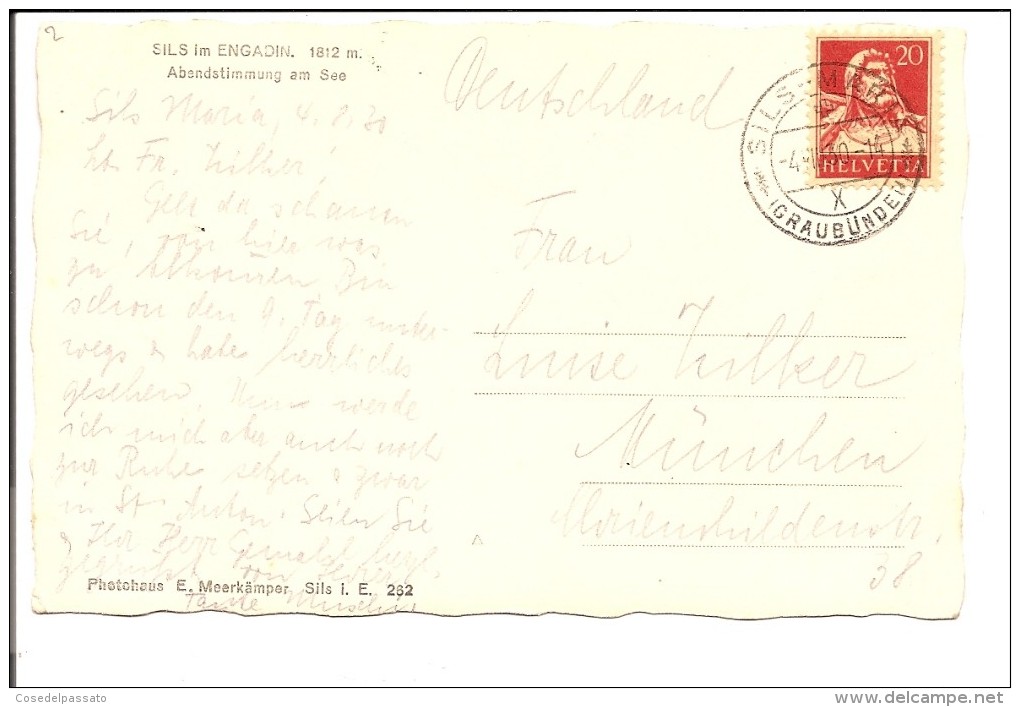 2
SILS im ENGADIN. 1812 m.
Abendstimmung am See
Sils Maria, 4.8.30
Lb. Fr. Zilker!
Gelt da schauen
Sie, von hier was
zu bekommen Bin
schon den 9. Tag unter-
wegs & habe herrliches
gesehen. Nun werde
ich mich aber auch noch
zur Ruhe setzen & zwar
in St. Anton. Seien Sie
& Ihr Herr Gemahl herzl.
gegrüsst von
Tante
Photohaus E. Meerkämper Sils i. E. 262
Deutschland
20
HELVETIA
SILS-MARIA
-4.VIII.30-14
X
(GRAUBÜNDEN)
Frau
Luise Zilker
München
38
Cosedelpassato
delcampe.net